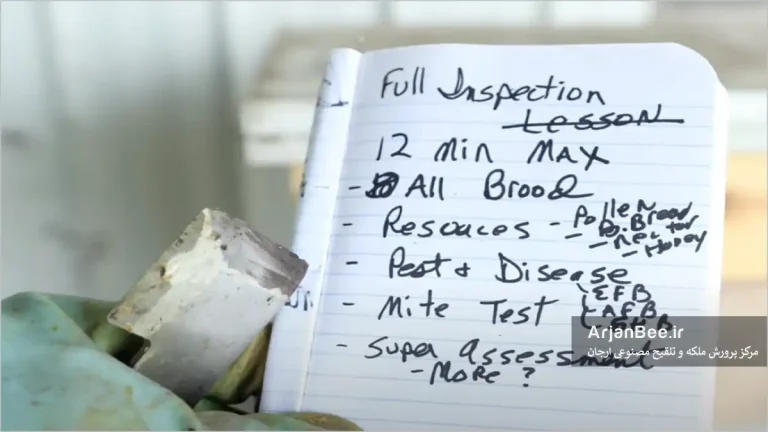 Full Inspection
Lesson
12 Min Max
- All Brood
- Resouces - Pollen
- P. Brood
- Nectar
- Honey
- Pest & Disease
- Mite Test { EFB
AFB
- Super Assessment
- More ?
ArjanBee.ir
مرکز پرورش ملکه و تلقیح مصنوعی ارجان